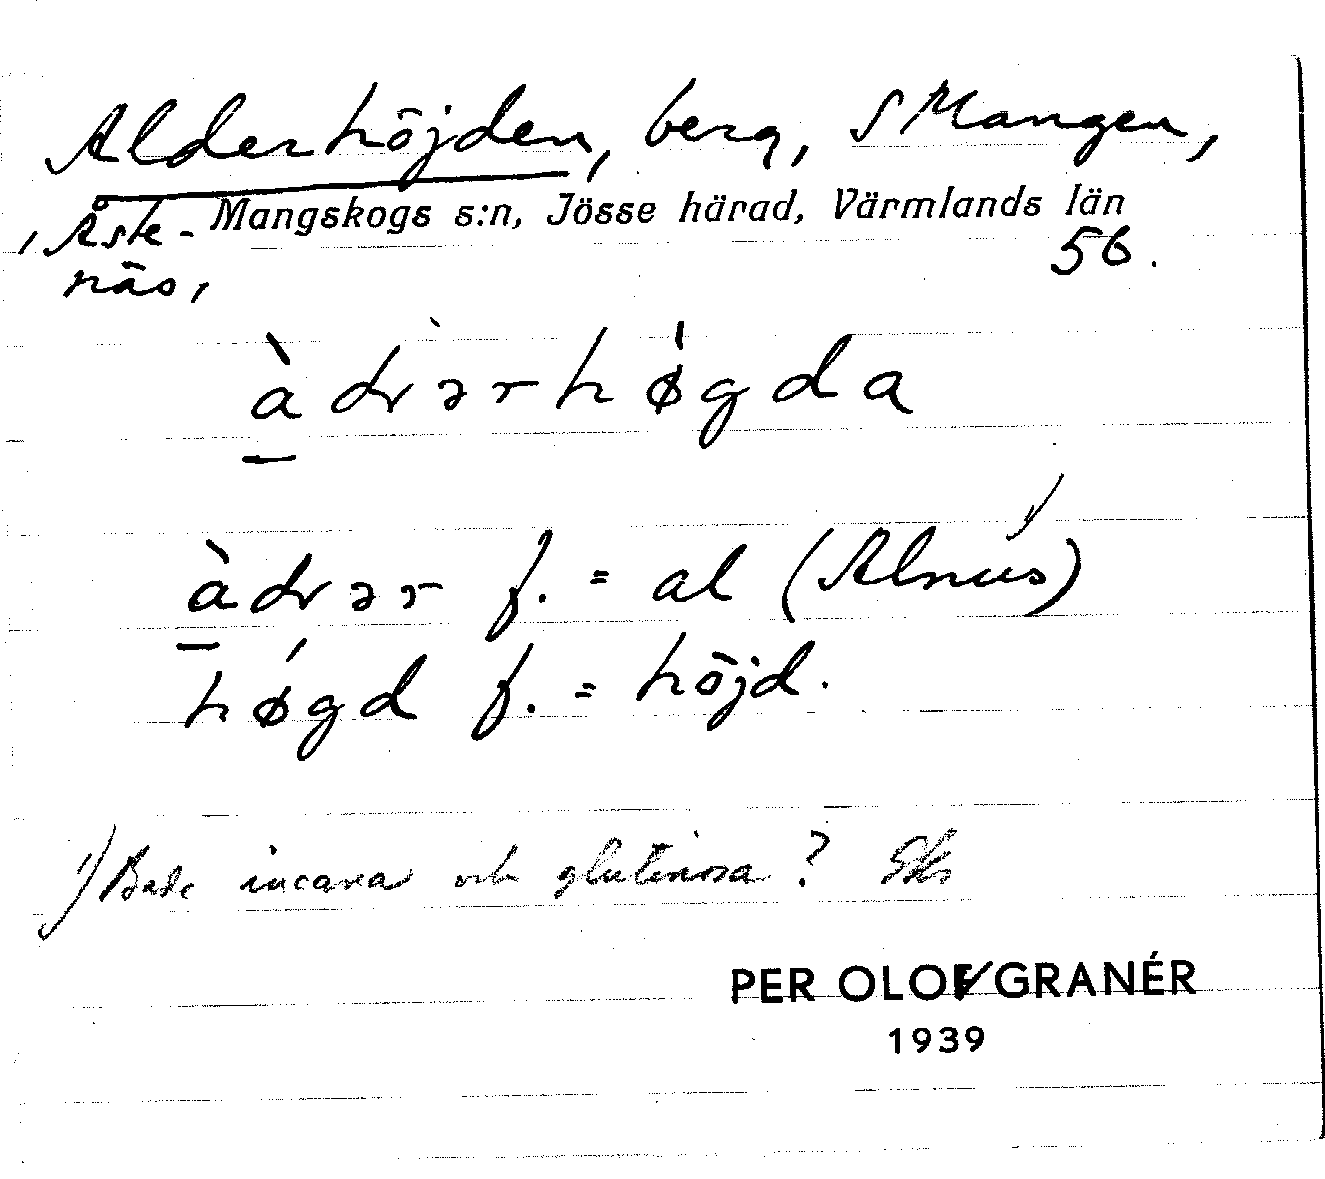 Alderhöjden, berg, S Mangen,
Mangskogs s:n, Jösse härad, Värmlands län
, Åste-
näs, 56.
àdərhø̀gda
àdər f. = al (Alnus) ¹⁾
høgd f. = höjd.
1) Både incana och glutinosa?
PER OLOF GRANÉR
1939